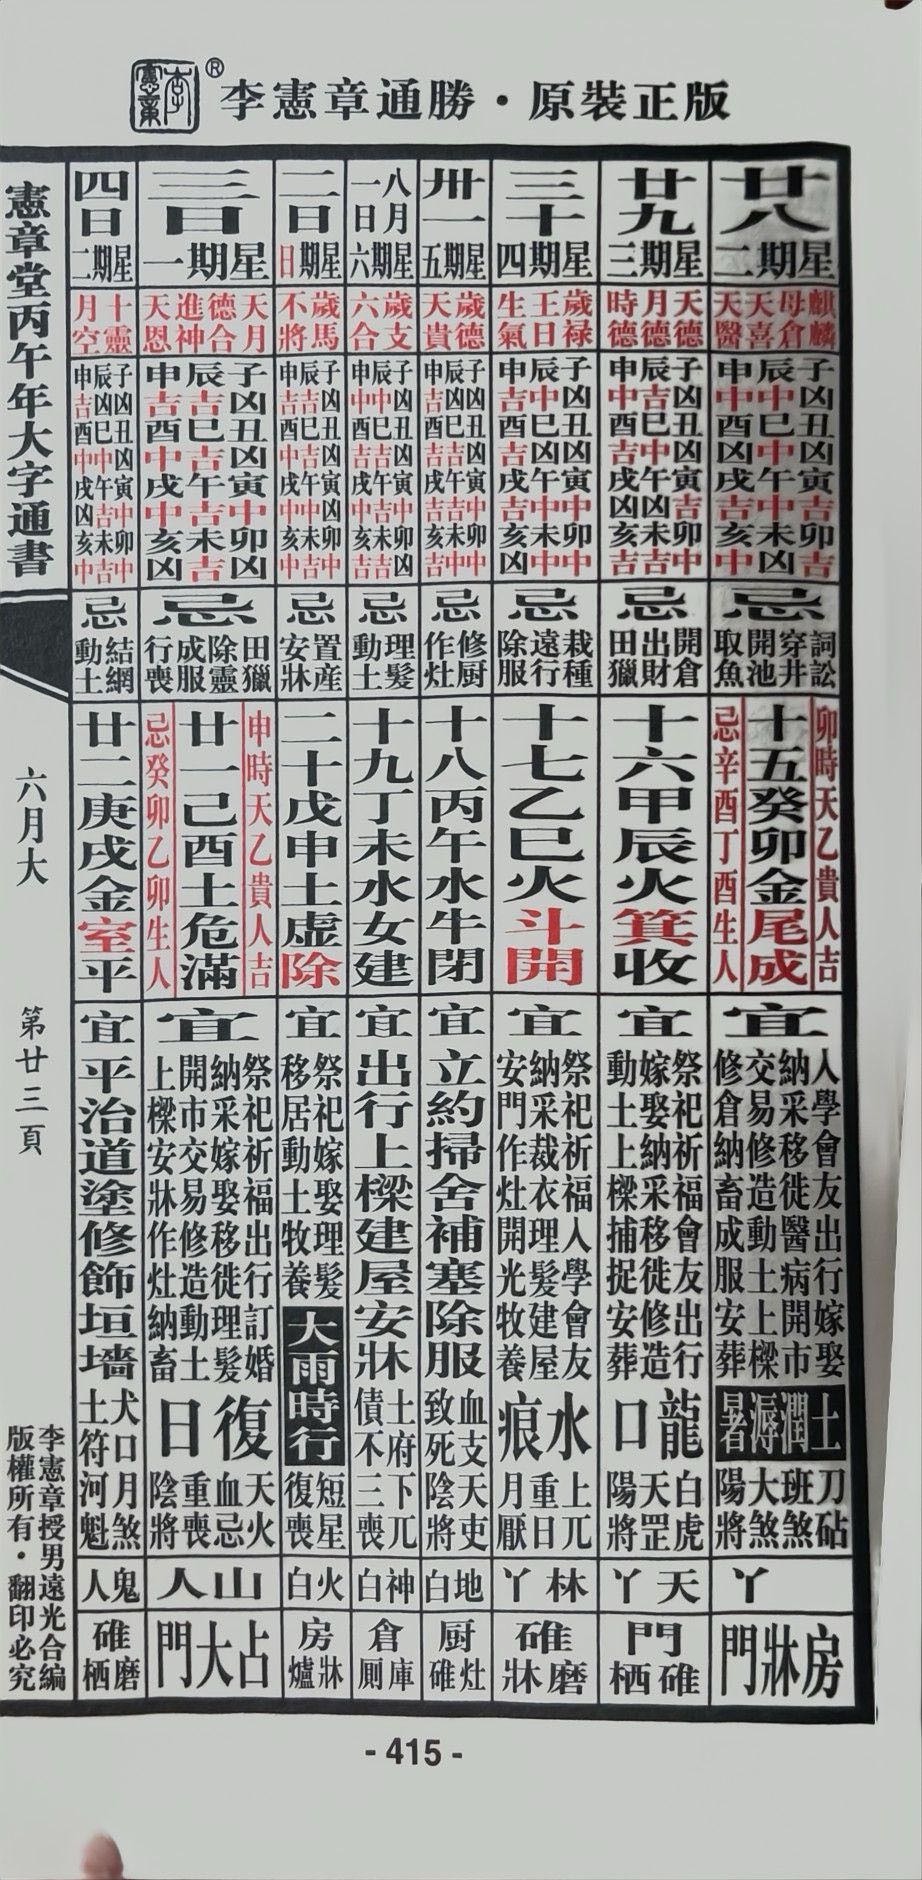 李憲章通勝・原裝正版
憲章
李
®
廿八
星期二
麒麟
母倉
天喜
天醫
子凶丑凶寅吉卯吉
辰中巳中午中未凶
申中酉凶戌吉亥中
忌
詞訟
穿井
開池
取魚
卯時天乙貴人吉
十五癸卯金尾成
忌辛酉丁酉生人
宜
入學會友出行嫁娶
納采移徙醫病開市
交易修造動土上樑
修倉納畜成服安葬
土潤溽暑
刀砧
班煞
大煞
陽將
丫
房牀門
廿九
星期三
天德
月德
時德
子凶丑凶寅吉卯中
辰吉巳中午凶未吉
申中酉吉戌凶亥吉
忌
開倉
出財
田獵
十六甲辰火箕收
宜
祭祀祈福會友出行
嫁娶納采移徙修造
動土上樑捕捉安葬
龍口
白虎
天罡
陽將
天丫
門
碓栖
三十
星期四
歲祿
王日
生氣
子凶丑凶寅中卯中
辰中巳凶午中未中
申吉酉吉戌吉亥凶
忌
栽種
遠行
除服
十七乙巳火斗開
宜
祭祀祈福入學會友
納采裁衣理髮建屋
安門作灶開光牧養
水痕
上兀
重日
月厭
林丫
碓
磨牀
卅一
星期五
歲德
天貴
子凶丑凶寅中卯中
辰凶巳吉午吉未中
申吉酉吉戌吉亥吉
忌
修厨
作灶
十八丙午水牛閉
宜
立約掃舍補塞除服
血支
致死
天吏
陰將
地白
厨
灶碓
八月
一日
星期六
歲支
六合
子凶丑凶寅中卯凶
辰中巳吉午吉未吉
申中酉吉戌中亥吉
忌
理髮
動土
十九丁未水女建
宜
出行上樑建屋安牀
土府
債不
下兀
三喪
神白
倉
庫厠
二日
星期日
歲馬
不將
子凶丑凶寅凶卯中
辰吉巳吉午中未吉
申吉酉中戌中亥中
忌
置產
安牀
二十戊申土虛除
宜
祭祀嫁娶理髮
移居動土牧養
大雨時行
短星
復喪
火白
房
牀爐
三日
星期一
天月
德合
進神
天恩
子凶丑凶寅中卯凶
辰吉巳吉午吉未吉
申吉酉中戌中亥凶
忌
田獵
除靈
成服
行喪
申時天乙貴人吉
廿一己酉土危滿
忌癸卯乙卯生人
宜
祭祀祈福出行訂婚
納采嫁娶移徙理髮
開市交易修造動土
上樑安牀作灶納畜
復日
天火
血忌
重喪
陰將
山人
占大門
四日
星期二
十靈
月空
子凶丑凶寅中卯中
辰凶巳中午吉未吉
申吉酉中戌凶亥中
忌
結網
動土
廿二庚戌金室平
宜
平治道塗修飾垣墻
犬口
土符
月煞
河魁
鬼人
碓
磨栖
憲章堂丙午年大字通書
六月大
第廿三頁
李憲章授男遠光合編
版權所有・翻印必究
- 415 -